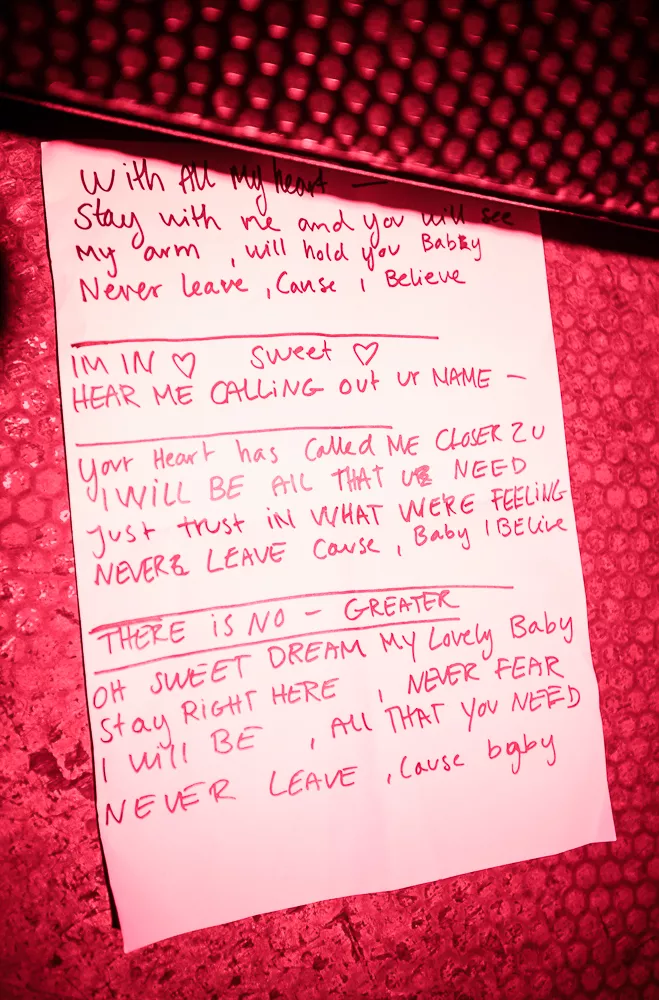 With All My heart —
Stay with me and you will see
My arm , will hold you Babby
Never leave , Cause I Believe
IM IN ♡ Sweet ♡
HEAR ME CALLING OUt Ur NAME —
Your Heart has Called ME CLOSER 2 U
I WILL BE All THAT U NEED
Just trust IN WHAT WE'RE FEELING
NEVER LEAVE Cause , Baby I BELive
THERE IS NO — GREATER
OH SWEET DREAM My Lovely Baby
Stay RIGHT HERE , NEVER FEAR
I Will BE , All THAT YOU NEED
NEVER LEAVE , Cause baby